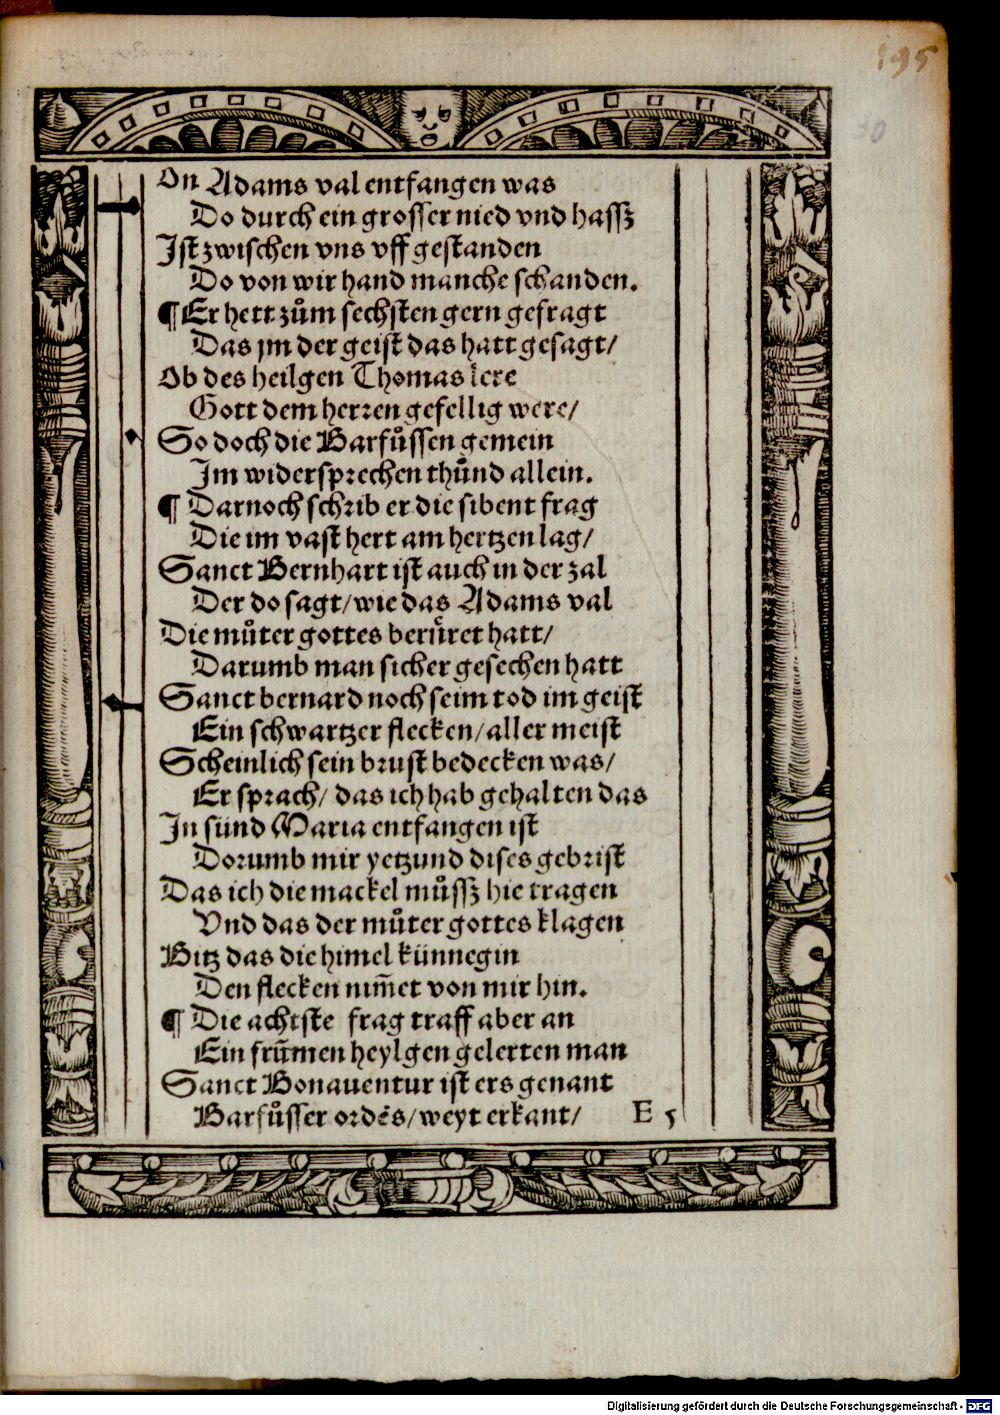 195
30
On Adams val entfangen was
Do durch ein grosser nied vnd hassz
Ist zwischen vns vff gestanden
Do von wir hand manche schanden.
¶ Er hett zům sechsten gern gefragt
Das jm der geist das hatt gesagt/
Ob des heilgen Thomas lere
Gott dem herren gefellig were/
So doch die Barfůssen gemein
Im widersprechen thůnd allein.
¶ Darnoch schrib er die sibent frag
Die im vast hert am hertzen lag/
Sanct Bernhart ist auch in der zal
Der do sagt/wie das Adams val
Die můter gottes berůret hatt/
Darumb man sicher gesechen hatt
Sanct bernard noch seim tod im geist
Ein schwartzer flecken/aller meist
Scheinlich sein brust bedecken was/
Er sprach/ das ich hab gehalten das
In sünd Maria entfangen ist
Dorumb mir yetzund dises gebrist
Das ich die mackel můssz hie tragen
Vnd das der můter gottes klagen
Bitz das die himel künnegin
Den flecken nim̄et von mir hin.
¶ Die achtste frag traff aber an
Ein frūmen heylgen gelerten man
Sanct Bonauentur ist ers genant
Barfůsser ordēs/weyt erkant/ E 5
Digitalisierung gefördert durch die Deutsche Forschungsgemeinschaft - DFG